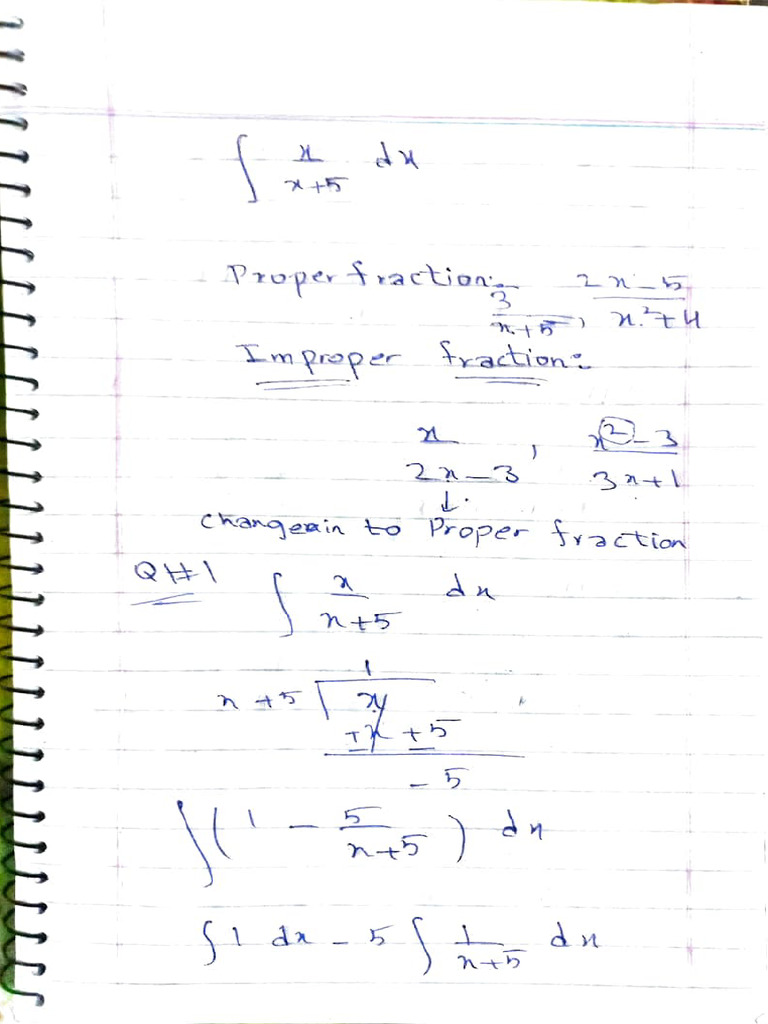 ∫ x/(x+5) dx
Proper fraction:- 3/(x+5), (2x-5)/(x²+4)
Improper fraction:-
x/(2x-3), (x²-3)/(3x+1)
↓
change in to Proper fraction
Q#1 ∫ x/(x+5) dx
1
x+5 ) x
+x +5
- 5
∫(1 - 5/(x+5)) dx
∫1 dx - 5 ∫ 1/(x+5) dx